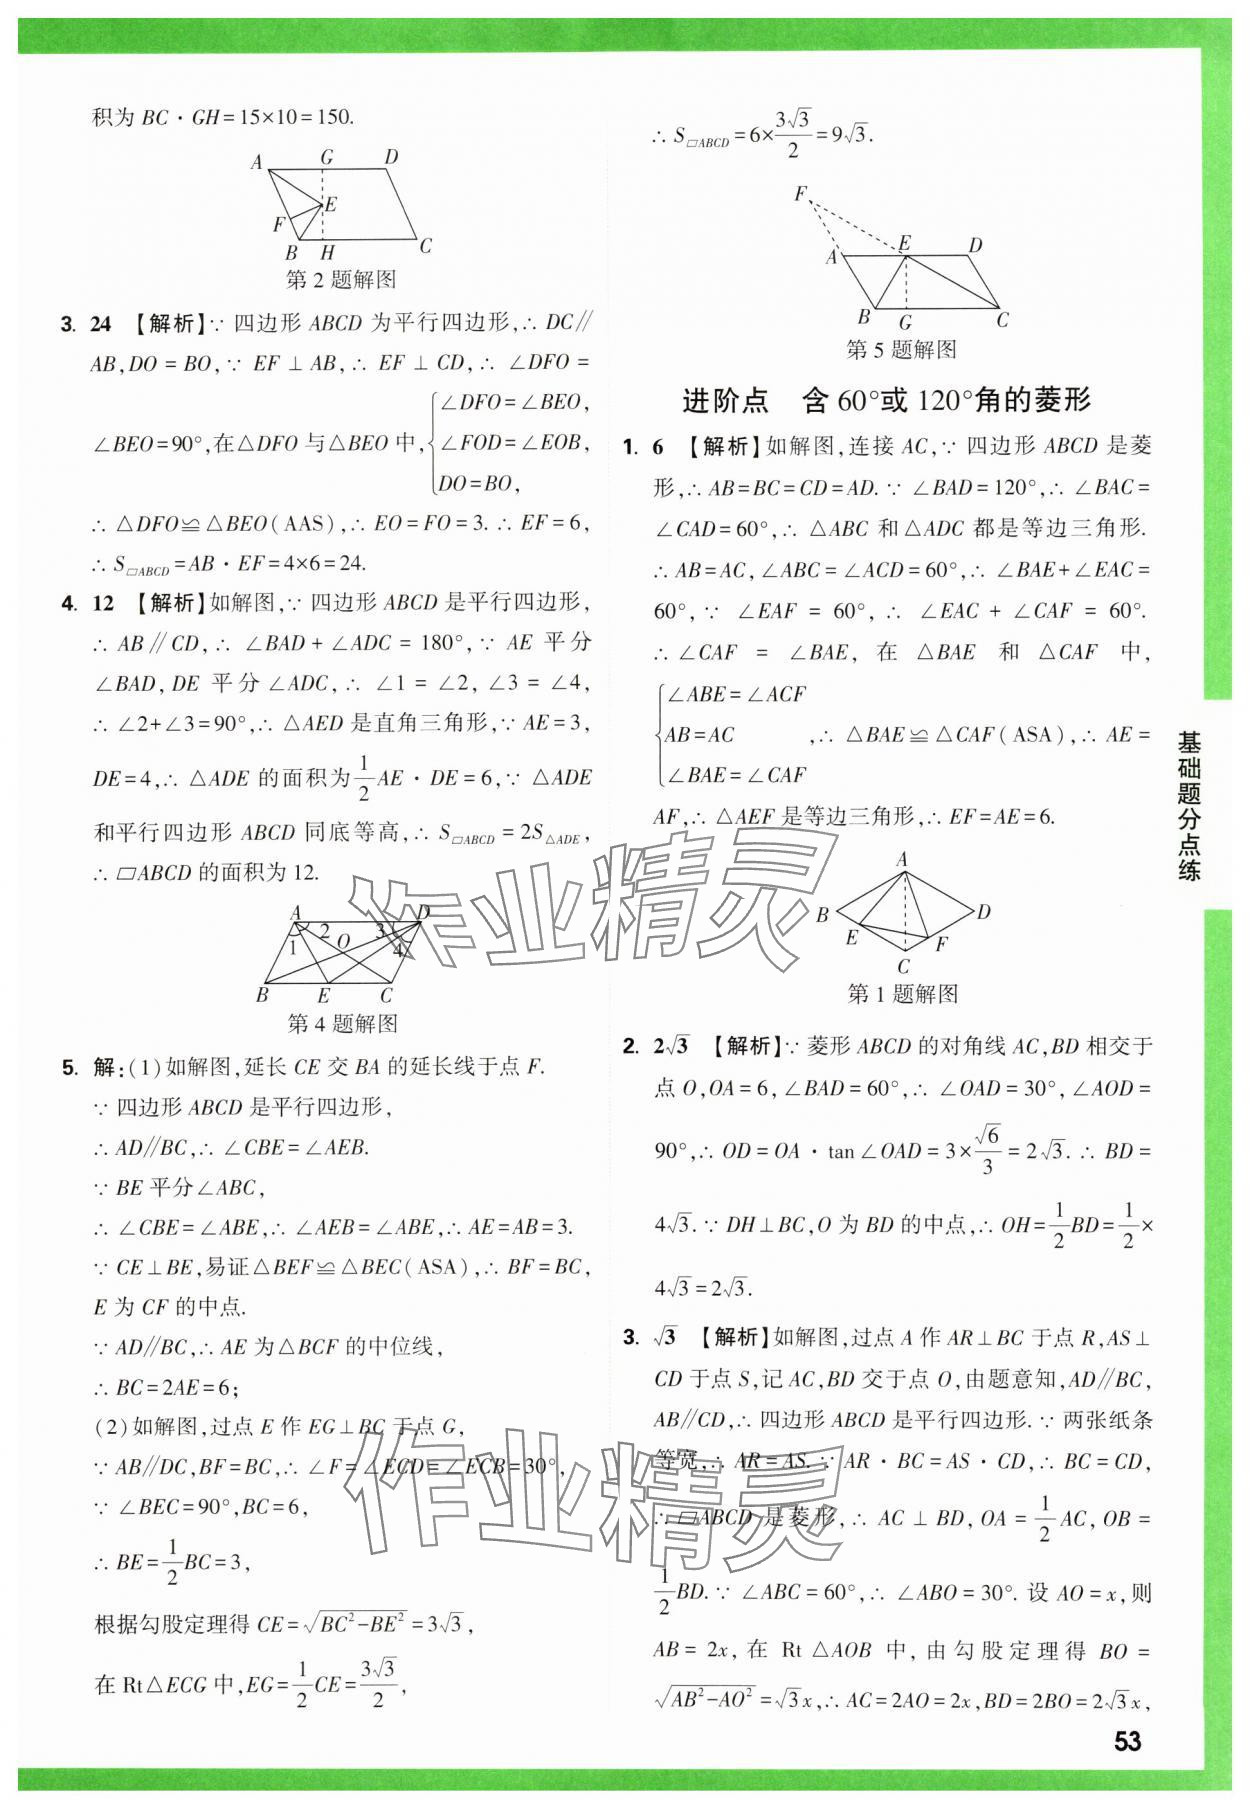 积为 BC·GH=15×10=150.
A G D
F E
B H C
第 2 题解图
3. 24 【解析】∵ 四边形 ABCD 为平行四边形,∴ DC∥
AB,DO = BO,∵ EF ⊥ AB,∴ EF ⊥ CD,∴ ∠DFO =
∠BEO=90°,在△DFO 与△BEO 中,{∠DFO=∠BEO,
∠FOD=∠EOB,
DO=BO,
∴ △DFO≌△BEO(AAS),∴ EO=FO=3.∴ EF=6,
∴ S▱ABCD=AB·EF=4×6=24.
4. 12 【解析】如解图,∵ 四边形 ABCD 是平行四边形,
∴ AB∥CD,∴ ∠BAD+∠ADC = 180°,∵ AE 平分
∠BAD,DE 平分∠ADC,∴ ∠1 = ∠2, ∠3 = ∠4,
∴ ∠2+∠3=90°,∴ △AED 是直角三角形,∵ AE=3,
DE=4,∴ △ADE 的面积为1/2AE·DE=6,∵ △ADE
和平行四边形 ABCD 同底等高,∴ S▱ABCD = 2S△ADE,
∴ ▱ABCD 的面积为 12.
A D
1 2 O 3 4
B E C
第 4 题解图
5. 解:(1)如解图,延长 CE 交 BA 的延长线于点 F.
∵ 四边形 ABCD 是平行四边形,
∴ AD∥BC,∴ ∠CBE=∠AEB.
∵ BE 平分∠ABC,
∴ ∠CBE=∠ABE,∴ ∠AEB=∠ABE,∴ AE=AB=3.
∵ CE⊥BE,易证△BEF≌△BEC(ASA),∴ BF=BC,
E 为 CF 的中点.
∵ AD∥BC,∴ AE 为△BCF 的中位线,
∴ BC=2AE=6;
(2)如解图,过点 E 作 EG⊥BC 于点 G,
∵ AB∥DC,BF=BC,∴ ∠F=∠ECD=∠ECB=30°,
∵ ∠BEC=90°,BC=6,
∴ BE=1/2BC=3,
根据勾股定理得 CE=√(BC²-BE²)=3√3,
在 Rt△ECG 中,EG=1/2CE=3√3/2,
∴ S▱ABCD=6×3√3/2=9√3.
F
A E D
B G C
第 5 题解图
进阶点 含 60°或 120°角的菱形
1. 6 【解析】如解图,连接 AC,∵ 四边形 ABCD 是菱
形,∴ AB=BC=CD=AD.∵ ∠BAD=120°,∴ ∠BAC=
∠CAD=60°,∴ △ABC 和△ADC 都是等边三角形.
∴ AB=AC,∠ABC=∠ACD=60°,∴ ∠BAE+∠EAC=
60°,∵ ∠EAF = 60°,∴ ∠EAC + ∠CAF = 60°.
∴ ∠CAF = ∠BAE, 在 △BAE 和 △CAF 中,
{∠ABE=∠ACF
AB=AC ,∴ △BAE≌△CAF(ASA),∴ AE=
∠BAE=∠CAF
AF,∴ △AEF 是等边三角形,∴ EF=AE=6.
A
B D
E F
C
第 1 题解图
2. 2√3 【解析】∵ 菱形 ABCD 的对角线 AC,BD 相交于
点 O,OA=6,∠BAD=60°,∴ ∠OAD=30°,∠AOD=
90°,∴ OD=OA·tan∠OAD=3×√6/3=2√3.∴ BD=
4√3.∵ DH⊥BC,O 为 BD 的中点,∴ OH=1/2BD=1/2×
4√3=2√3.
3. √3 【解析】如解图,过点 A 作 AR⊥BC 于点 R,AS⊥
CD 于点 S,记 AC,BD 交于点 O,由题意知,AD∥BC,
AB∥CD,∴ 四边形 ABCD 是平行四边形.∵ 两张纸条
等宽,∴ AR=AS.∵ AR·BC=AS·CD,∴ BC=CD,
∴ ▱ABCD 是菱形,∴ AC⊥BD,OA=1/2AC,OB=
1/2BD.∵ ∠ABC=60°,∴ ∠ABO=30°.设 AO=x,则
AB = 2x, 在 Rt △AOB 中, 由勾股定理得 BO =
√(AB²-AO²)=√3x,∴ AC=2AO=2x,BD=2BO=2√3x,
基础题分点练
53
作业精灵
作业精灵